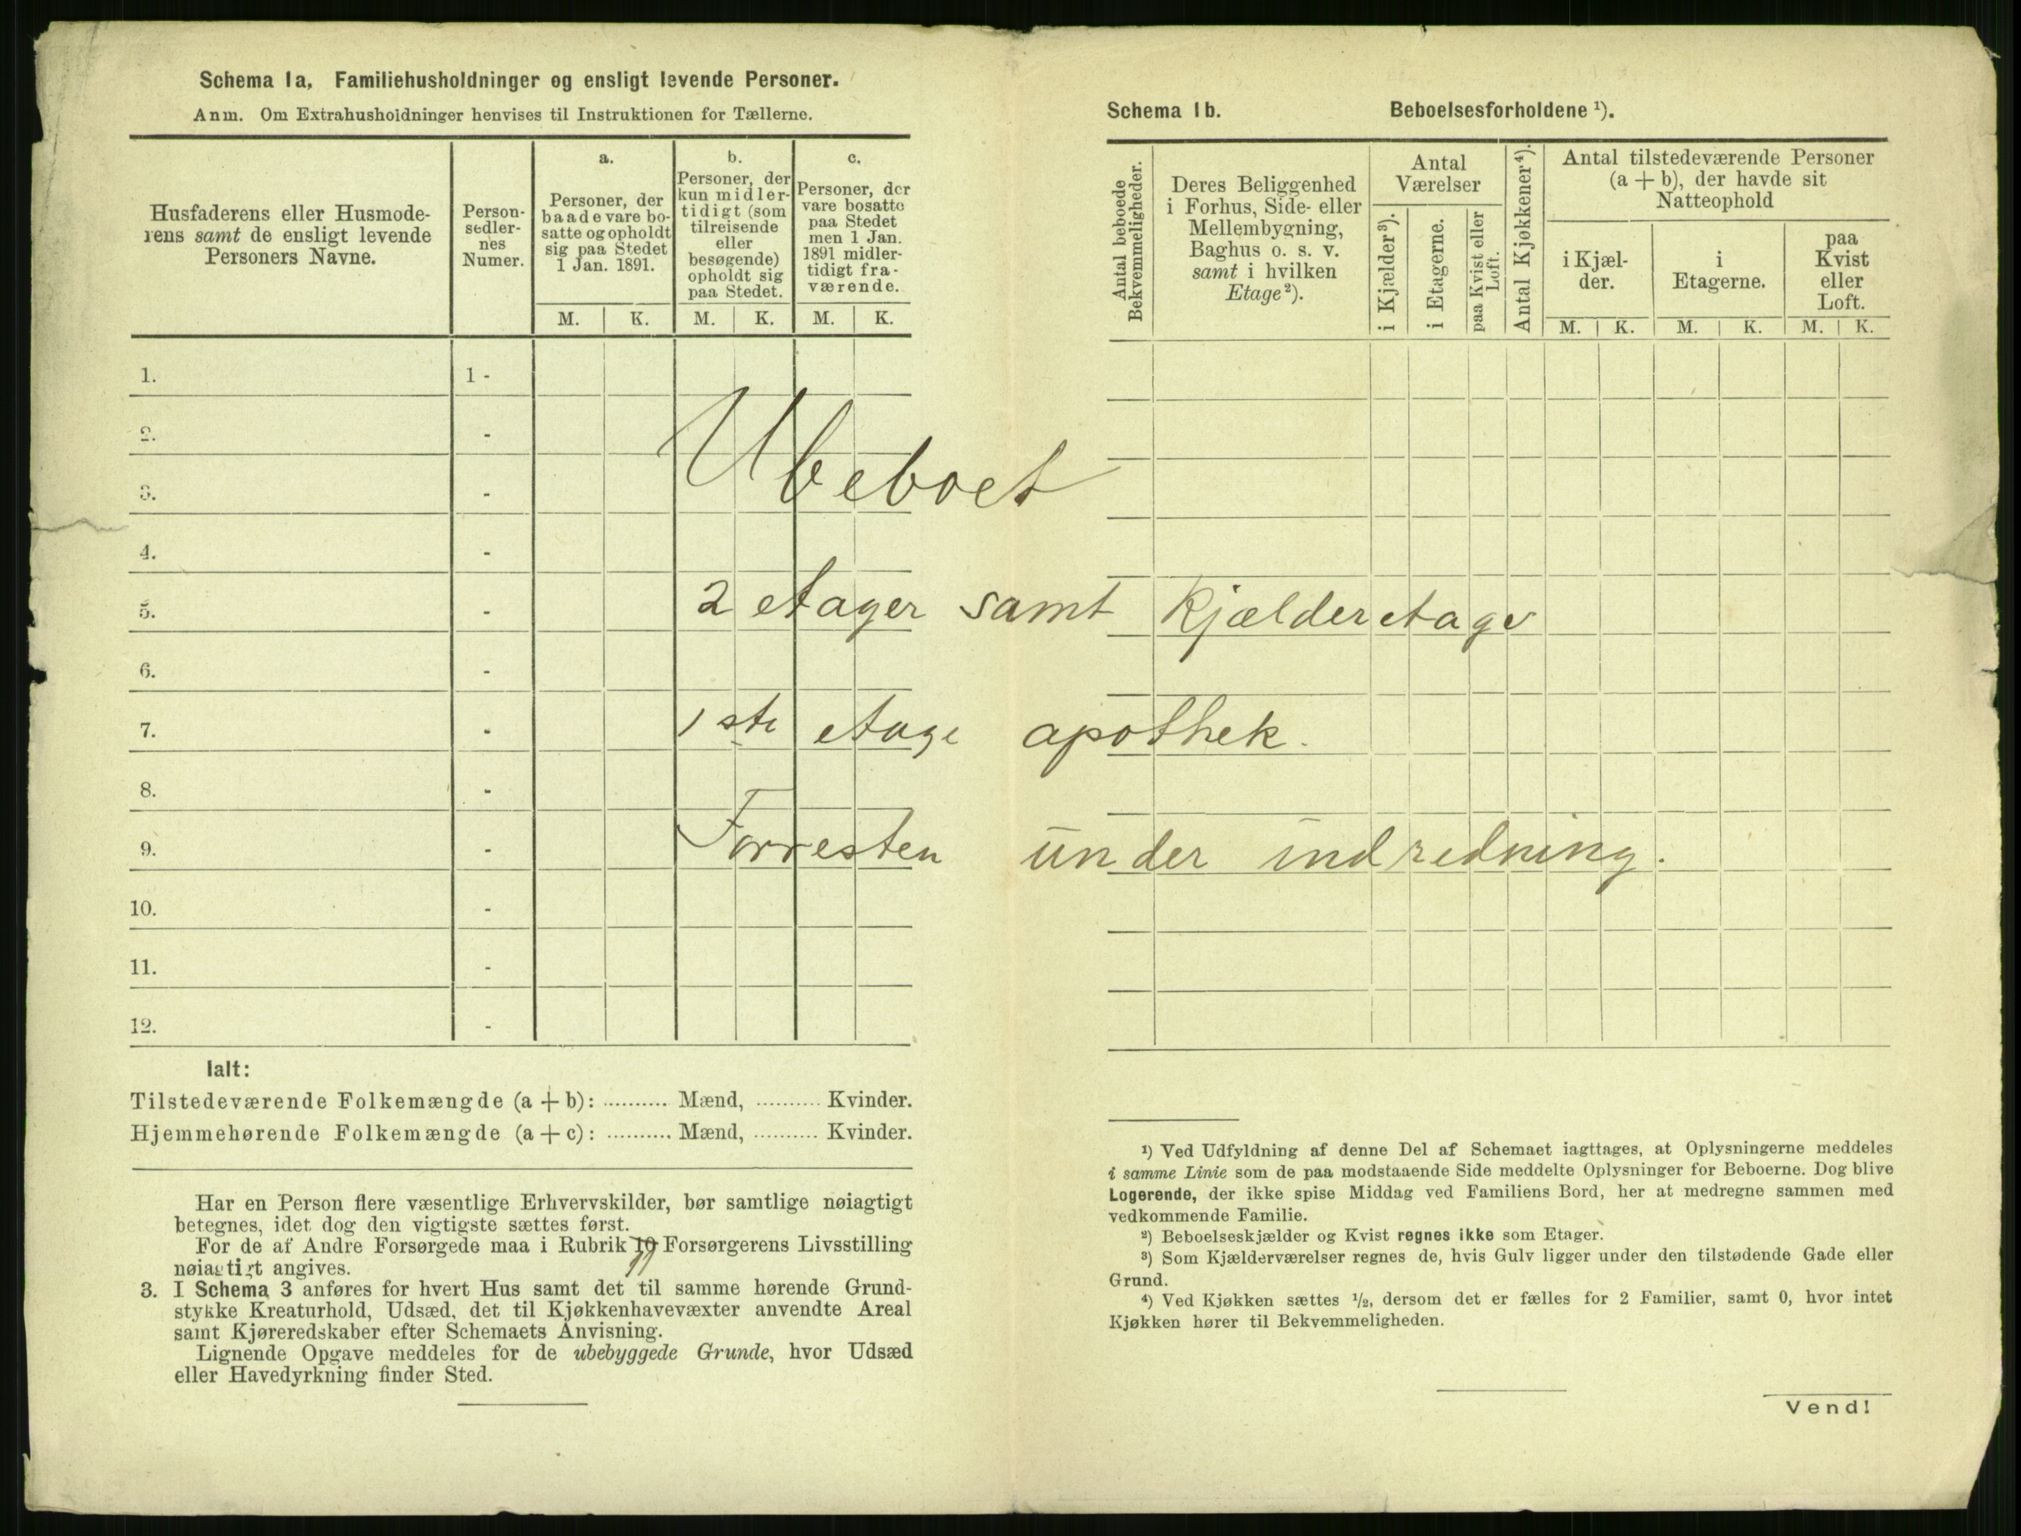 Schema 1a, Familiehusholdninger og ensligt levende Personer.
Anm. Om Extrahusholdninger henvises til Instruktionen for Tællerne.
Husfaderens eller Husmode-
rens samt de ensligt levende
Personers Navne.
Person-
sedler-
nes
Numer.
a.
Personer, der
baade vare bo-
satte og opholdt
sig paa Stedet
1 Jan. 1891.
b.
Personer, der
kun midler-
tidigt (som
tilreisende
eller
besøgende)
opholdt sig
paa Stedet.
c.
Personer, der
vare bosatte
paa Stedet
men 1 Jan.
1891 midler-
tidigt fra-
værende.
M. K. M. K. M. K.
1. 1 -
2. -
3. -
4. -
5. -
6. -
7. -
8. -
9. -
10. -
11. -
12. -
Ubeboet
2 etager samt kjælderetage
1ste etage apothek.
Forresten under indredning.
Ialt:
Tilstedeværende Folkemængde (a + b): .......... Mænd, .......... Kvinder.
Hjemmehørende Folkemængde (a + c): .......... Mænd, .......... Kvinder.
Har en Person flere væsentlige Erhvervskilder, bør samtlige nøiagtigt
betegnes, idet dog den vigtigste sættes først.
For de af Andre Forsørgede maa i Rubrik 10 Forsørgerens Livsstilling
11
nøiagtigt angives.
3. I Schema 3 anføres for hvert Hus samt det til samme hørende Grund-
stykke Kreaturhold, Udsæd, det til Kjøkkenhavevæxter anvendte Areal
samt Kjøreredskaber efter Schemaets Anvisning.
Lignende Opgave meddeles for de ubebyggede Grunde, hvor Udsæd
eller Havedyrkning finder Sted.
Schema 1b. Beboelsesforholdene ¹).
Antal beboede
Bekvemmeligheder.
Deres Beliggenhed
i Forhus, Side- eller
Mellembygning,
Baghus o. s. v.
samt i hvilken
Etage²).
Antal
Værelser
i Kjælder³).
i Etagerne.
paa Kvist eller
Loft.
Antal Kjøkkener⁴).
Antal tilstedeværende Personer
(a + b), der havde sit
Natteophold
i Kjæl-
der.
i
Etagerne.
paa
Kvist
eller
Loft.
M. K. M. K. M. K.
¹) Ved Udfyldning af denne Del af Schemaet iagttages, at Oplysningerne meddeles
i samme Linie som de paa modstaaende Side meddelte Oplysninger for Beboerne. Dog blive
Logerende, der ikke spise Middag ved Familiens Bord, her at medregne sammen med
vedkommende Familie.
²) Beboelseskjælder og Kvist regnes ikke som Etager.
³) Som Kjælderværelser regnes de, hvis Gulv ligger under den tilstødende Gade eller
Grund.
⁴) Ved Kjøkken sættes ½, dersom det er fælles for 2 Familier, samt 0, hvor intet
Kjøkken hører til Bekvemmeligheden.
Vend!